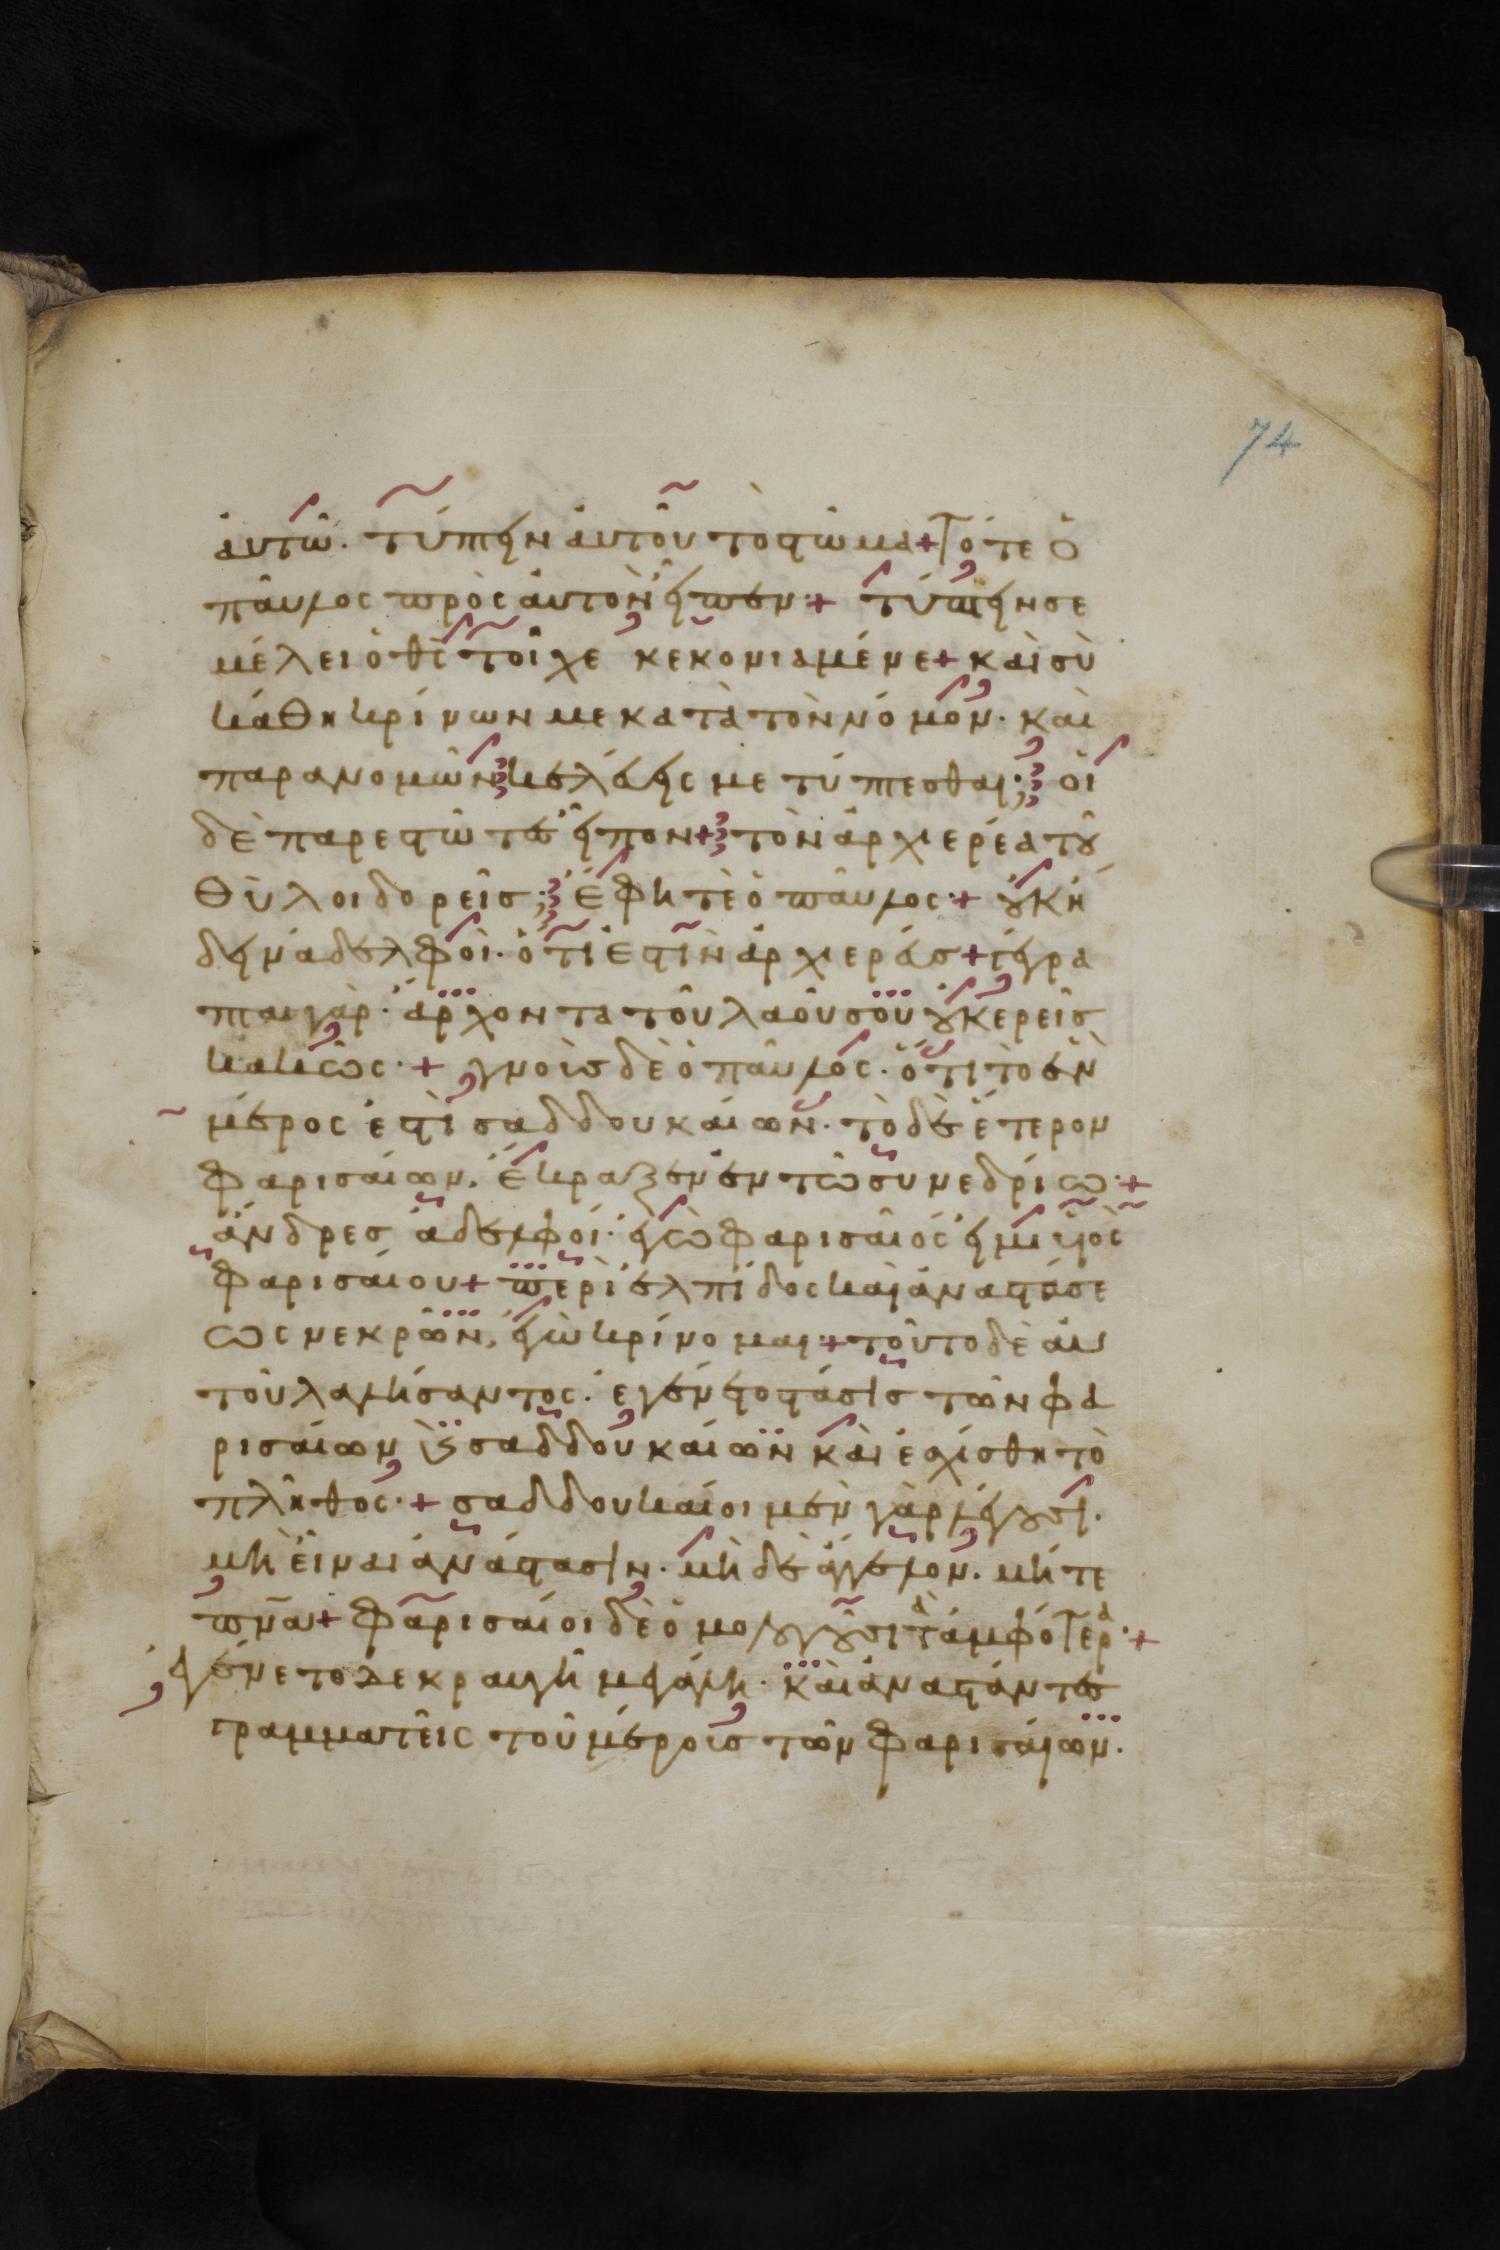 74
ἀυτῶ. τύπτην ἀυτοῦ τὸ στῶμα + Τότε ὁ
παῦλος πρὸς ἀυτὸν ἦπεν + τύπτην σε
μέλει ὁ θς τοῖχε κεκονιαμένε + καὶ σὺ
κάθη κρίνων με κατὰ τὸν νόμον. καὶ
παρανομῶν κελέυης με τύπτεσθαι; οἱ
δὲ παρεστῶτες ἦπον + τὸν ἀρχιερέα τοῦ
θῦ λοιδορεῖς; ἔφη τὲ ὁ παῦλος + οὐκ ἤ
δην ἀδελφοὶ. ὅτι ἐστὶν ἀρχιερέυς + γέγρα
πται γὰρ. ἄρχοντα τοῦ λαοῦ σου οὐκ ερεῖς
κακῶς. + γνοὺς δὲ ὁ παῦλος. ὅτι τὸ ἓν
μέρος ἐστὶ σαδδουκαίων. τὸ δὲ ἕτερον
φαρισαίων. ἔκραξεν ἐν τῶ συνεδρίω +
ἄνδρες ἀδελφοί. ἐγὼ φαρισαῖός ἠμι υἱὸς
φαρισαίου + περὶ ἐλπίδος καὶ ἀναστάσε
ως νεκρῶν, ἐγὼ κρίνομαι + τοῦτο δὲ ἀυ
τοῦ λαλήσαντος. ἐγένετο στάσις τῶν φα
ρισαίων κ σαδδουκαίων καὶ ἐσχίσθη τὸ
πλῆθος. + σαδδουκαίοι μὲν γὰρ λέγουσι.
μὴ εἶναι ἀνάστασιν. μὴ δὲ ἄγγελον. μήτε
πνα + φαρισαίοι δὲ ὁμολογοῦσι τὰ ἀμφότερα +
ἐγένετο δε κραυγὴ μεγάλη. καὶ ἀναστάντες
γραμματεῖς τοῦ μέρους τῶν φαρισαίων.